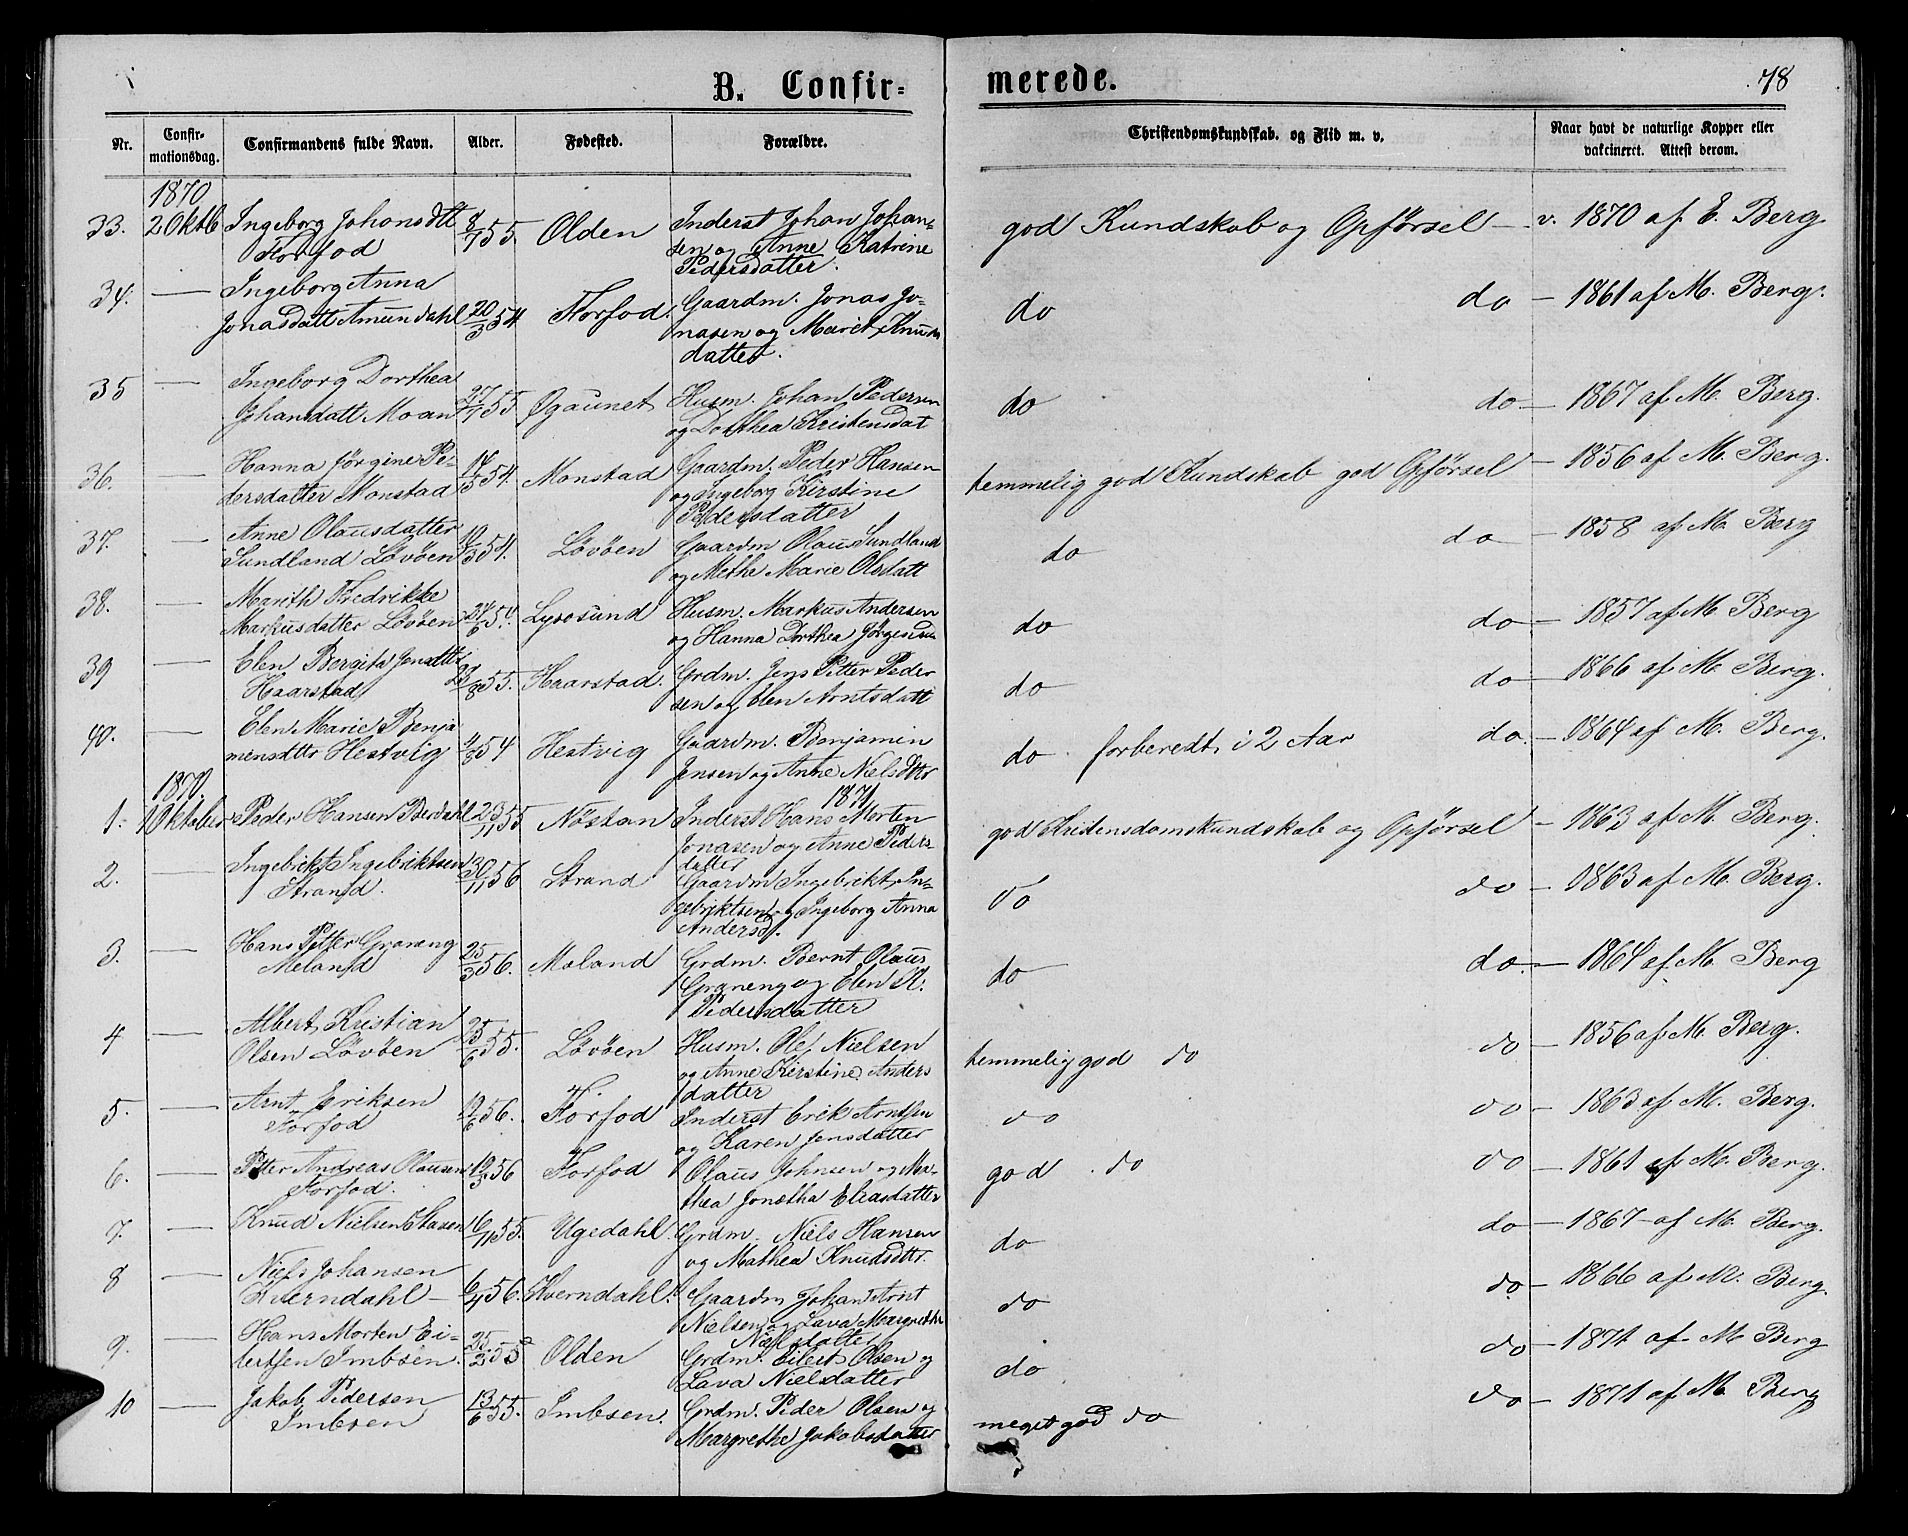 B. Confir=
merede.
78
Nr.
Confir-
mationsdag.
Confirmandens fulde Navn.
Alder.
Fødested.
Forældre.
Christendomskundskab, og Flid m. v.
Naar havt de naturlige Kopper eller
vakcineret. Attest derom.
1870
33. 2 Oktb Ingeborg Johansdtt 8/7 55. Olden Inderst Johan Johan- god Kundskab og Opførsel — v. 1870 af E. Berg
Forfod sen og Anne Katrine
Pedersdatter.
34. — Ingeborg Anna
Jonasdatt Amundahl 20/3 54. Forfod. Gaardm. Jonas Jo- do do — 1861 af M. Berg.
nasen og Marit Knuds
datter.
35 — Ingeborg Dorthea
Johansdatt Moan 27/7 55. Ogaunet Husm. Johan Pedersen do do — 1867 af M. Berg.
og Dorthea Kristensdat
36. — Hanna Jørgine Pe-
dersdatter Monstad 14/5 54. Monstad Gaardm. Peder Hansen temmelig god Kundskab god Opførsel — 1856 af M. Berg.
og Ingeborg Kirstine
Pedersdatter
37. — Anne Olausdatter
Sundland Løvøen 10/3 54. Løvøen Gaardm Olaus Sundland do do — 1858 af M. Berg
og Methe Marie Olsdatt
38. — Marith Fredrikke
Markusdatter Løvøen 24/6 54. Lysosund Husm. Markus Andersen do do — 1857 af M. Berg
og Hanna Dorthea
39 — Elen Bergita Jensdtter
Haarstad 55. Haarstad. Grdm. Jens Petter Peder do do — 1866 af M. Berg.
sen og Elen Arntsdatt
40. — Elen Marie Benja
mensdtter Hestvig 54 Hestvig Gaardm. Benjamin do forberedt i 2 Aar do. — 1864 af M. Berg.
Jensen og Anne Nielsdtter
1870. 1871
1. 1 Oktober Peder Hansen Berdahl 23/11 55 Nøstan Inderst Hans Morten god Kristensdomskundskab og Opførsel — 1863 af M. Berg.
Jonasen og Anne Peders
datter
2. — Ingebrikt Ingebriktsen 30/11 56 Strand Gaardm Ingebrikt In- do do — 1863 af M. Berg.
Strand. gebriktsen og Ingeborg Anna
Andersd.
3. — Hans Petter Graneng 25/3 56. Moland Grdm. Bernt Olaus do do. — 1864 af M. Berg
Meland Graneng og Elen
Pedersdatter
4 — Albert Kristian 25/6 55. Løvøen Husm. Ole Nielsen temmelig god do do — 1856 af M. Berg.
Olsen Løvøen og Anne Kerstine Anders
datter
5. — Arnt Eriksen 19/6 56. Forfod Inderst Erik Arntsen do do — 1863 af M. Berg.
Forfod og Karen Jensdatter
6. — Petter Andreas Olausen 19/3 56 Forfod Olaus Johnsen og Ma- god do do — 1861 af M. Berg.
Forfod. thea Jonetha Eliasdatter
7. — Knud Nielsen 16/11 55. Ugedahl. Grdm. Niels Hansen do do — 1867 af M. Berg.
og Mathea Knudsdtr.
8 — Niels Johansen 6/4 56. Kverndahl. Gaardm Johan Arnt do do — 1866 af M. Berg.
Kverndahl — Nielsen og Lava Margrethe
Nielsdatter
9. — Hans Morten Ei- 25/2 55 Olden Grdm. Eilert Olsen og do do — 1871 af M. Berg
lertsen Imbsen. Lava Nielsdatter
10 — Jakob Pedersen 13/6 55. Imbsen. Grdm. Peder Olsen og meget god do do — 1871 af M. Berg
Imbsen Margrethe Jakobsdatter